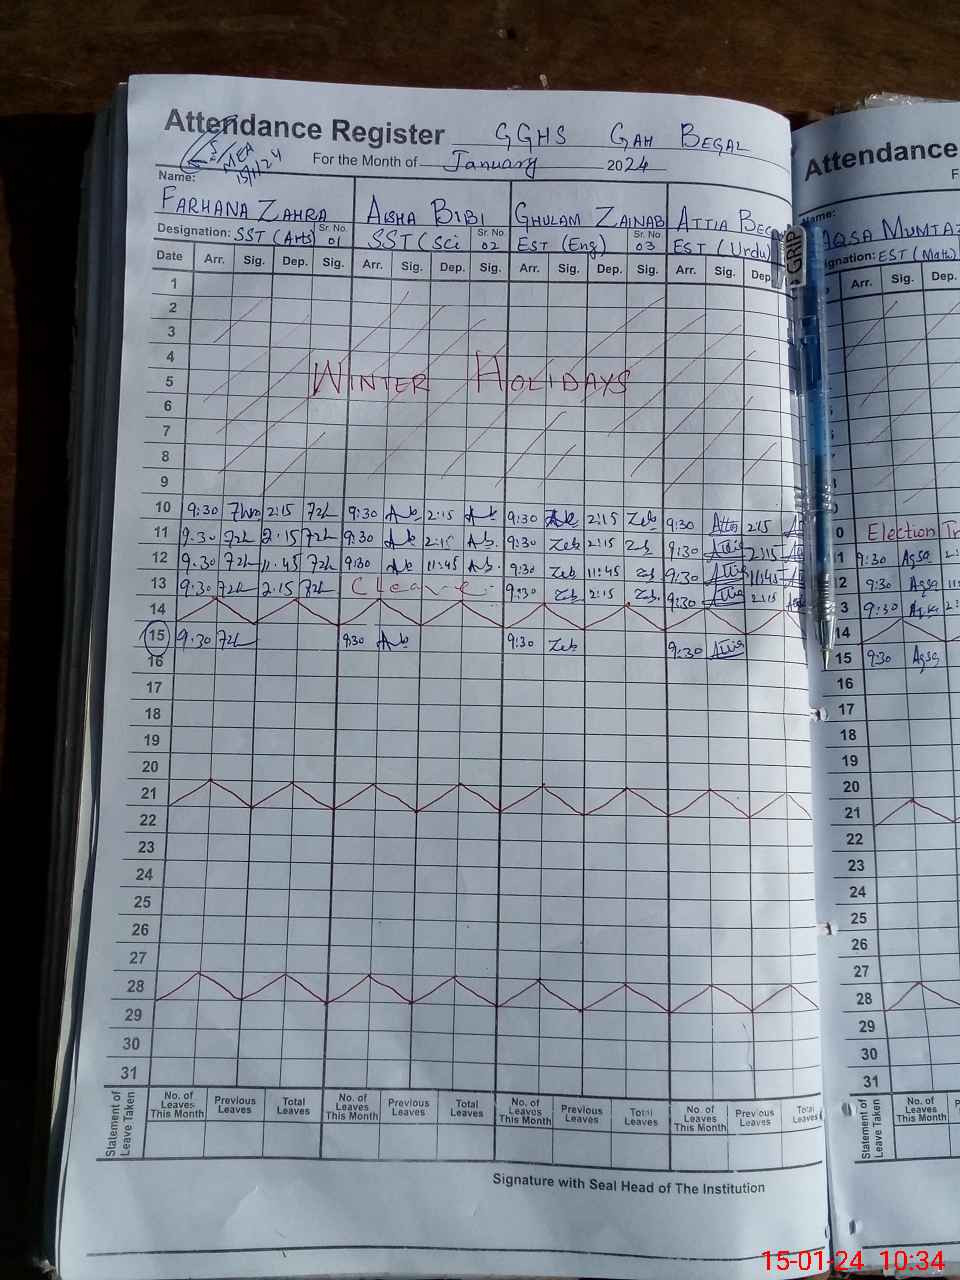 Attendance Register GGHS GAH BEGAL
MEA
15/1/24
For the Month of January 2024
Name:
FARHANA ZAHRA AISHA BIBI GHULAM ZAINAB ATTIA
Designation: SST (Arts) Sr. No. 01 SST (Sci Sr. No. 02 EST (Eng) Sr. No. 03 EST (Urdu)
Date Arr. Sig. Dep. Sig. Arr. Sig. Dep. Sig. Arr. Sig. Dep. Sig. Arr. Sig. Dep.
1
2
3
4
5 WINTER HOLIDAYS
6
7
8
9
10 9:30 2:15 9:30 2:15 9:30 2:15 9:30 2:15
11 9:30 2:15 9:30 2:15 9:30 Zeb 2:15 9:30 2:15
12 9:30 11:45 9:30 11:45 9:30 Zeb 11:45 9:30 11:45
13 9:30 2:15 C Leave 9:30 Zeb 2:15 9:30 2:15
14
15 9:30 9:30 9:30 Zeb 9:30
16
17
18
19
20
21
22
23
24
25
26
27
28
29
30
31
Statement of Leave Taken No. of Leaves This Month Previous Leaves Total Leaves No. of Leaves This Month Previous Leaves Total Leaves No. of Leaves This Month Previous Leaves Total Leaves No. of Leaves This Month Previous Leaves Total Leaves
Signature with Seal Head of The Institution
GRIP
Attendance
Name:
AQSA
EST (Math)
Arr. Sig. Dep.
Election
9:30 Aqsa
12 9:30 Aqsa
9:30
14
15 9:30 Aqsa
16
17
18
19
20
21
22
23
24
25
26
27
28
29
30
31
Statement of Leave Taken No. of Leaves This Month
15-01-24 10:34